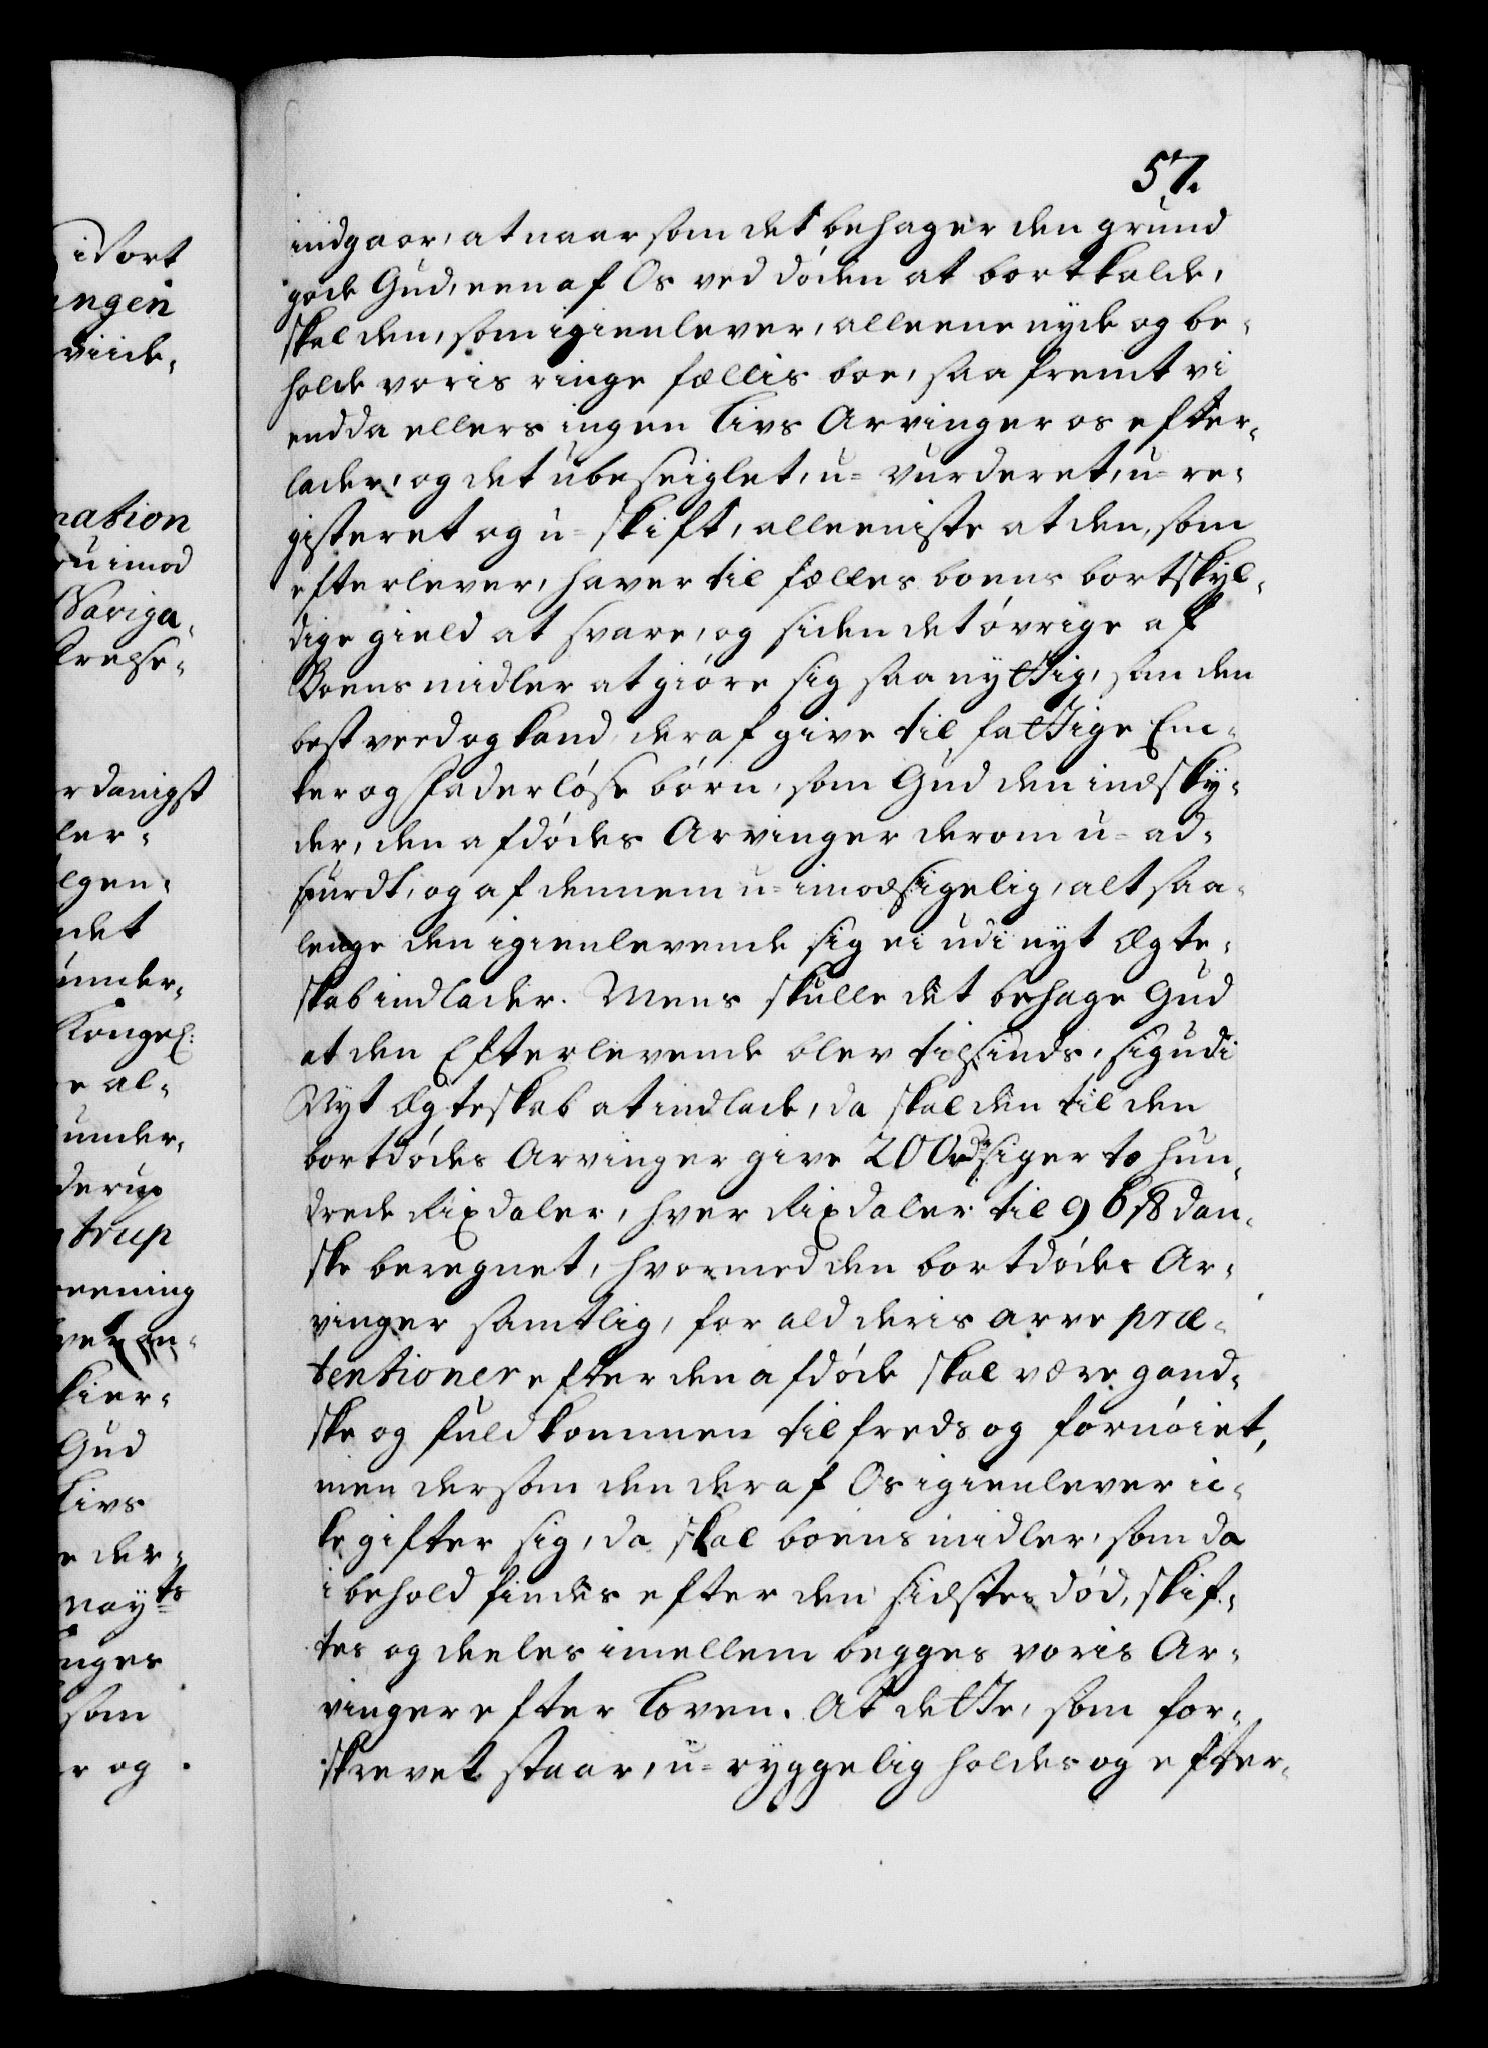 57.
indgaar, at naar som det behager den grund
gode Gud, een af Os ved døden at bortkalde,
skal den, som igienlever, alleene nyde og be-
holde voris ringe fællis boe, saafremt vi
endda ellers ingen Livs Arvinger os efter-
lader, og det ubeseiglet, u-vurderet, u-re-
gisteret og u-skift, alleeniste at den, som
efterlever, haver til fælles boens bortskyl-
dige gield at svare, og siden det øvrige af
Boens midler at giøre sig saa nyttig, som den
best veed og kand, deraf give til fattige En-
ker og Faderløse børn, som Gud den indsky-
der, den afdødes Arvinger derom u-ad-
spurdt, og af dennem u-imodsigelig, alt saa-
lenge den igienlevende sig ei udi nyt Ægte-
skab indlader. Mens skulle det behage Gud
at den Efterlevende blev tilsinds, sig udi
Nyt Ægteskab at indlade, da skal den til den
bortdødes Arvinger give 200 rdr siger to hun-
drede Rixdaler, hver Rixdaler til 96 ß dan-
ske beregnet, hvormed den bortdødes Ar-
vinger samtlig, for ald deris arve præ-
tentioner efter den afdøde skal være gand-
ske og fuldkommen tilfreds og fornøiet,
men dersom den der af Os igienlever ic-
ke gifter sig, da skal boens midler, som da
i behold findes efter den sidstes død, skif-
tes og deeles imellem begges voris Ar-
vinger efter Loven. At dette, som for-
skrevet staar, u-ryggelig holdes og efter-
i Vort
ngen
viide-
nation
imod
Naviga-
danigst
ler-
lgen-
det
under-
Kongel:
e al-
under-
derup
trup
eening
kier-
Gud
Livs
e der-
may^ts
nges
som
r og